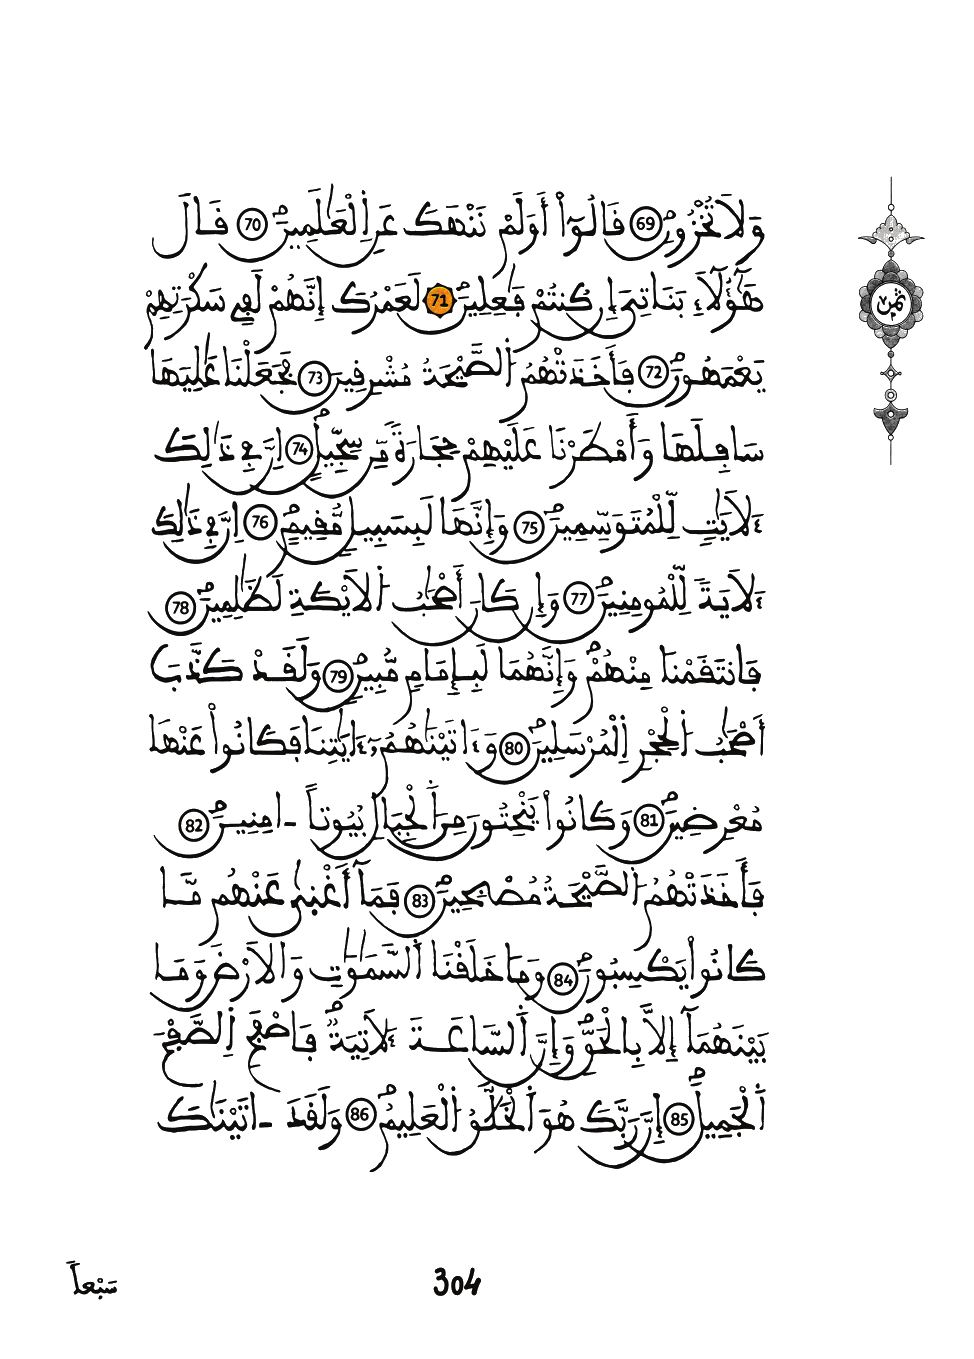 وَلَا تُخْزُونِ 69 قَالُوٓاْ أَوَلَمْ نَنْهَكَ عَنِ اِ۬لْعَٰلَمِينَ 70 قَالَ
هَٰٓؤُلَآءِ بَنَاتِيَ إِن كُنتُمْ فَٰعِلِينَ 71 لَعَمْرُكَ إِنَّهُمْ لَفِے سَكْرَتِهِمْ
يَعْمَهُونَ 72 فَأَخَذَتْهُمُ اُ۬لصَّيْحَةُ مُشْرِقِينَ 73 فَجَعَلْنَا عَٰلِيَهَا
سَافِلَهَا وَأَمْطَرْنَا عَلَيْهِمْ حِجَارَةٗ مِّن سِجِّيلٍ 74 اِنَّ فِے ذَٰلِكَ
ءَلَايَٰتٖ لِّلْمُتَوَسِّمِينَ 75 وَإِنَّهَا لَبِسَبِيلٖ مُّقِيمٍ 76 اِنَّ فِے ذَٰلِكَ
ءَلَايَةٗ لِّلْمُومِنِينَ 77 وَإِن كَانَ أَصْحَٰبُ اُ۬لَايْكَةِ لَظَٰلِمِينَ 78
فَانتَقَمْنَا مِنْهُمْ وَإِنَّهُمَا لَبِإِمَامٖ مُّبِينٖ 79 وَلَقَدْ كَذَّبَ
أَصْحَٰبُ اُ۬لْحِجْرِ اِ۬لْمُرْسَلِينَ 80 وَءَاتَيْنَٰهُمُۥٓ ءَايَٰتِنَا فَكَانُواْ عَنْهَا
مُعْرِضِينَ 81 وَكَانُواْ يَنْحِتُونَ مِنَ اَ۬لْجِبَالِ بُيُوتاً ـ‍امِنِينَ 82
فَأَخَذَتْهُمُ اُ۬لصَّيْحَةُ مُصْبِحِينَ 83 فَمَآ أَغْنَىٰ عَنْهُم مَّا
كَانُواْ يَكْسِبُونَ 84 وَمَا خَلَقْنَا اَ۬لسَّمَٰوَٰتِ وَالَارْضَ وَمَا
بَيْنَهُمَآ إِلَّا بِالْحَقِّ وَإِنَّ اَ۬لسَّاعَةَ ءَلَاتِيَةٞ فَاصْفَحِ اِ۬لصَّفْحَ
اَ۬لْجَمِيلَ 85 إِنَّ رَبَّكَ هُوَ اَ۬لْخَلَّٰقُ اُ۬لْعَلِيمُ 86 وَلَقَدَ ـ‍اتَيْنَٰكَ
ثمن
سَبْعاً
304